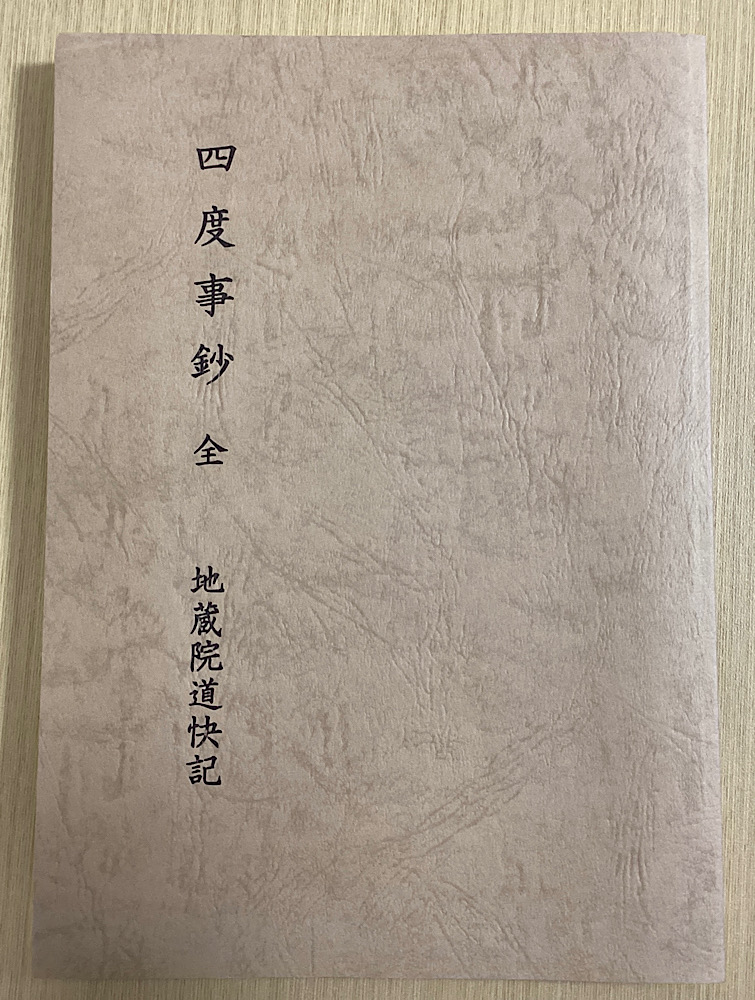 四度事鈔 全 地蔵院道快記